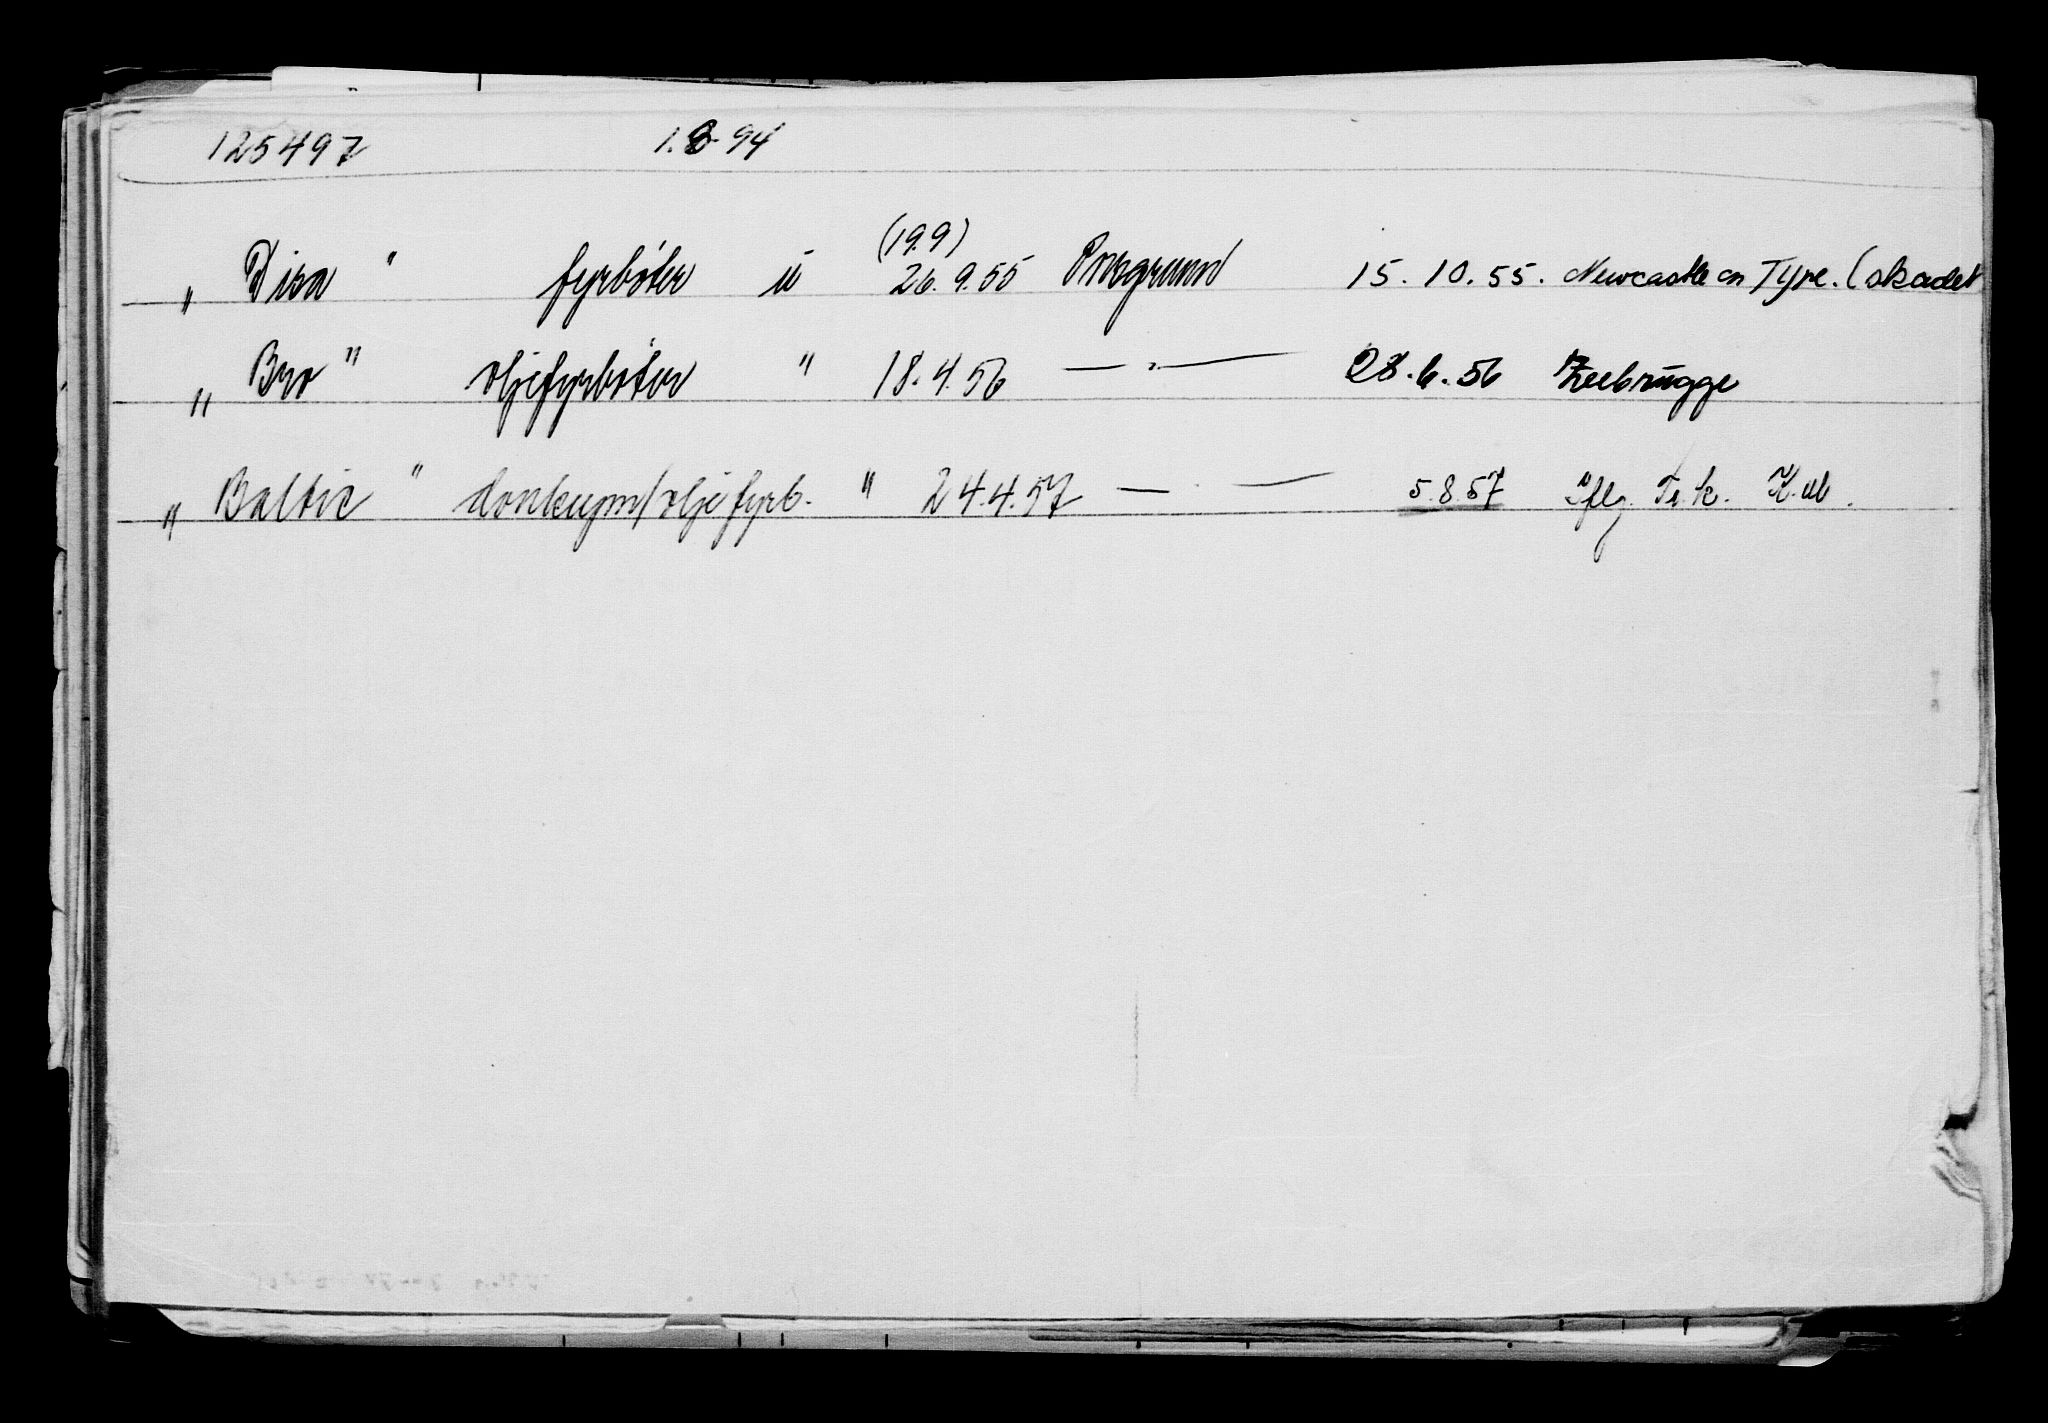 125497 1.8-94
(19.9)
„ Disa " fyrbøter u 26.9.55 Porsgrunn 15.10.55. Newcastle on Tyne. (skadet
„ Bro " oljefyrbøter " 18.4.56 — " — 28.6.56 Zeebrugge
„ Baltic " donkeym/oljefyrb. " 24.4.57 — " — 5.8.57